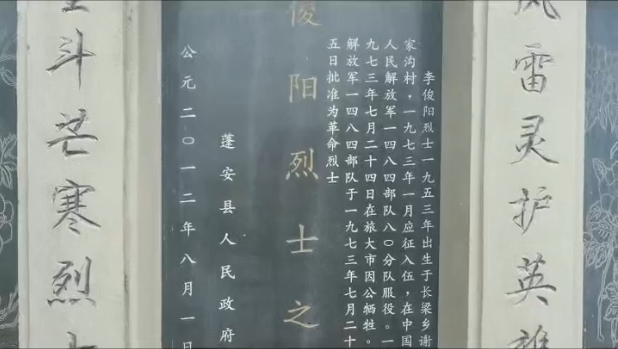 风雷灵护英雄
李俊阳烈士一九五三年出生于长梁乡谢
家沟村，一九七三年一月应征入伍，在中国
人民解放军一四八四部队八〇分队服役。一
九七三年七月二十四日在旅大市因公牺牲。
解放军一四八四部队于一九七三年七月二十
五日批准为革命烈士
俊阳烈士之
蓬安县人民政府
公元二〇一二年八月一日
斗芒寒烈士